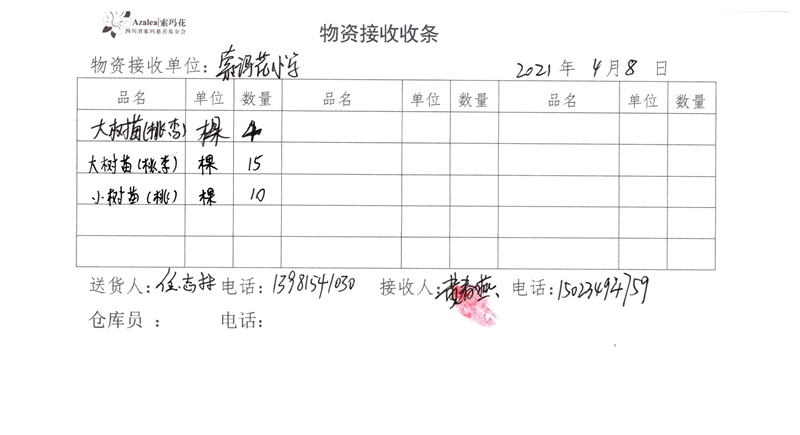 Azalea|索玛花
四川省索玛慈善基金会
物资接收收条
物资接收单位：索玛花小学
2021 年 4 月 8 日
品名 单位 数量 品名 单位 数量 品名 单位 数量
大树苗(桃李) 棵 4
大树苗(桃李) 棵 15
小树苗(桃) 棵 10
送货人：任志 电话：13981541030 接收人：黄春燕 电话：15023494759
仓库员 ： 电话：